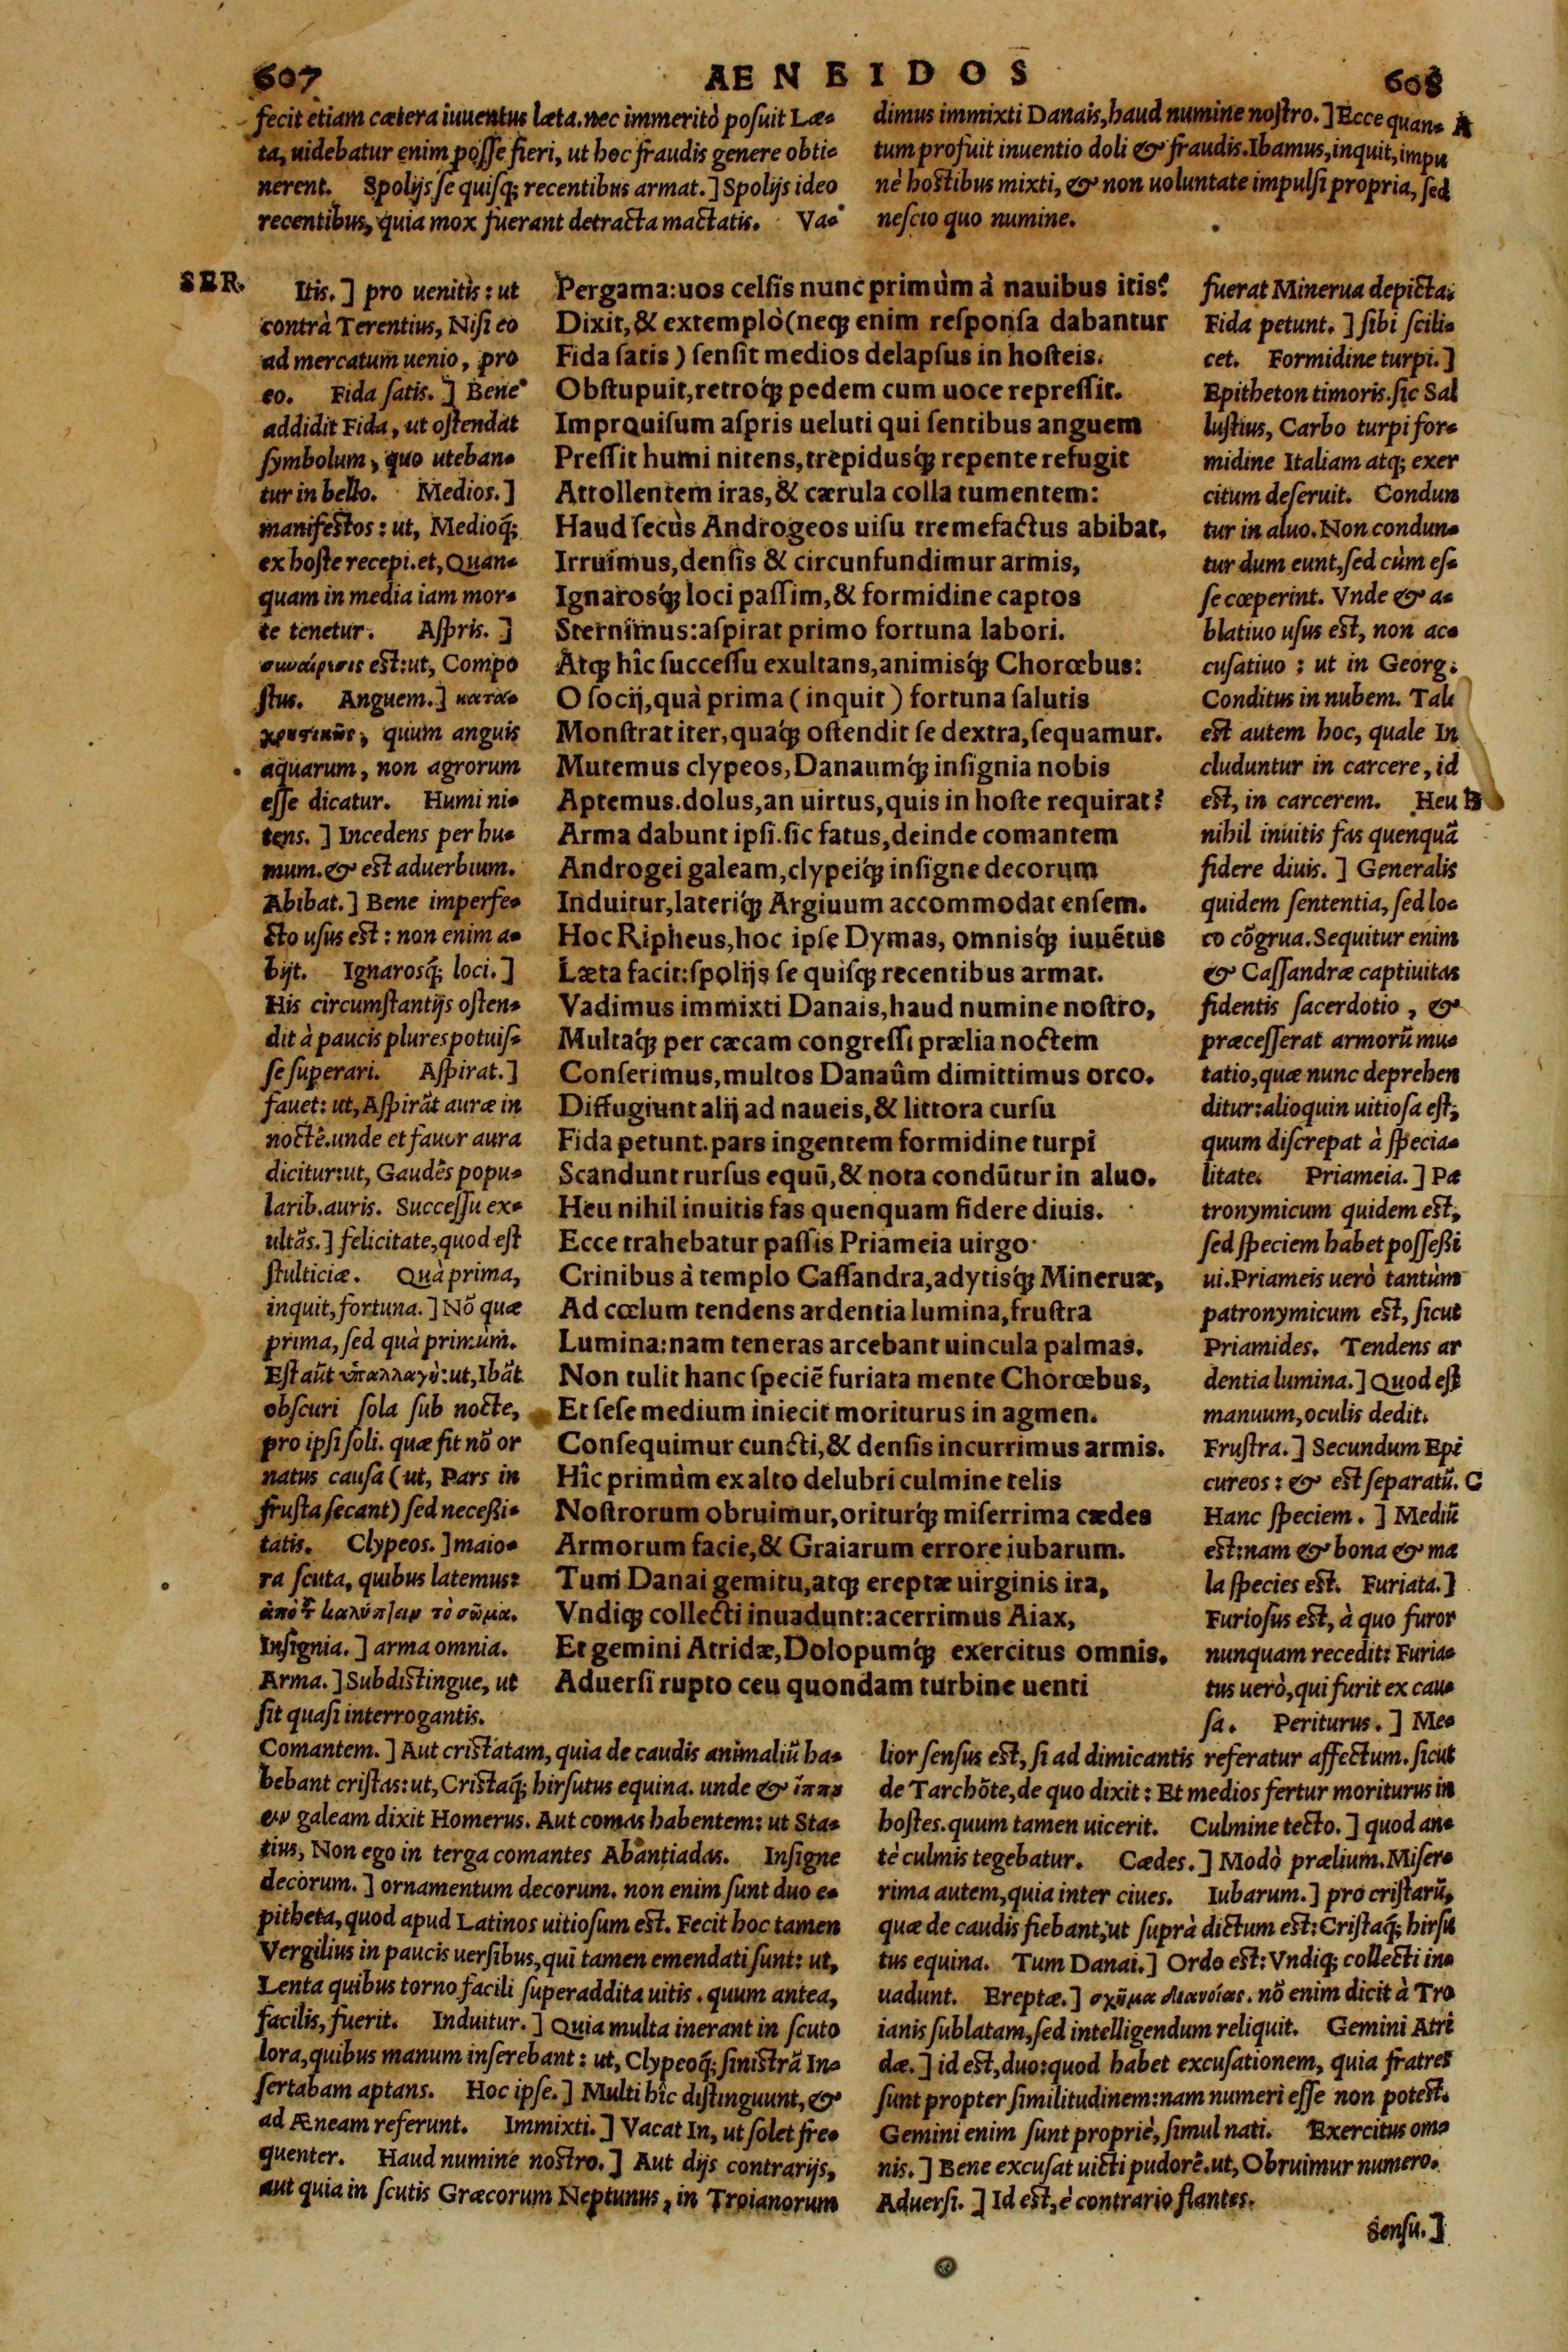 607
AENEIDOS
608
fecit etiam cætera iuuentus læta. nec immeritò posuit Læ-
ta, uidebatur enim posse fieri, ut hoc fraudis genere obti-
nerent. Spolijs se quisq; recentibus armat.] Spolijs ideo
recentibus, quia mox fuerant detracta mactatis. Va-
dimus immixti Danais, haud numine nostro.] Ecce quan- A
tum profuit inuentio doli & fraudis. Ibamus, inquit, impu
nè hostibus mixti, & non uoluntate impulsi propria, sed
nescio quo numine.
SER.
Itis.] pro uenitis: ut
contrà Terentius, Nisi eo
ad mercatum uenio, pro
eo. Fida satis.] Bene
addidit Fida, ut ostendat
symbolum, quo uteban-
tur in bello. Medios.]
manifestos: ut, Medioq́;
ex hoste recepi. et, Quan-
quam in media iam mor-
te tenetur. Aspris.]
συναίρεσις est: ut, Compo
stus. Anguem.] κατα-
χρηστικῶς, quum anguis
aquarum, non agrorum
esse dicatur. Humi ni-
tens.] Incedens per hu-
mum. & est aduerbium.
Abibat.] Bene imperfe-
cto usus est: non enim a-
bijt. Ignarosq́; loci.]
His circumstantijs osten-
dit à paucis plures potuis-
se superari. Aspirat.]
fauet: ut, Aspirāt auræ in
noctē. unde et fauor aura
dicitur: ut, Gaudēs popu-
larib. auris. Successu ex-
ultās.] felicitate, quod est
stulticiæ. Quà prima,
inquit, fortuna.] Nō quæ
prima, sed quà primùm.
Est aūt ὑπαλλαγὴ: ut, Ibāt
obscuri sola sub nocte,
pro ipsi soli. quæ fit nō or
natus causa (ut, Pars in
frusta secant) sed necessi-
tatis. Clypeos.] maio-
ra scuta, quibus latemus:
ἀπὸ τ͂ καλύπτειν τὸ σῶμα.
Insignia.] arma omnia.
Arma.] Subdistingue, ut
sit quasi interrogantis.
Pergama: uos celsis nunc primùm à nauibus itis?
Dixit, & extemplò (neq; enim responsa dabantur
Fida satis) sensit medios delapsus in hosteis.
Obstupuit, retroq́; pedem cum uoce repressit.
Improuisum aspris ueluti qui sentibus anguem
Pressit humi nitens, trepidusq́; repente refugit
Attollentem iras, & cærula colla tumentem:
Haud secùs Androgeos uisu tremefactus abibat,
Irruimus, densis & circunfundimur armis,
Ignarosq́; loci passim, & formidine captos
Sternimus: aspirat primo fortuna labori.
Atq; hîc successu exultans, animisq́; Chorœbus:
O socij, quà prima (inquit) fortuna salutis
Monstrat iter, quaq́; ostendit se dextra, sequamur.
Mutemus clypeos, Danaumq́; insignia nobis
Aptemus. dolus, an uirtus, quis in hoste requirat?
Arma dabunt ipsi. sic fatus, deinde comantem
Androgei galeam, clypeiq́; insigne decorum
Induitur, lateriq́; Argiuum accommodat ensem.
Hoc Ripheus, hoc ipse Dymas, omnisq́; iuuētus
Læta facit: spolijs se quisq; recentibus armat.
Vadimus immixti Danais, haud numine nostro,
Multaq́; per cæcam congressi prælia noctem
Conserimus, multos Danaûm dimittimus orco.
Diffugiunt alij ad naueis, & littora cursu
Fida petunt. pars ingentem formidine turpi
Scandunt rursus equū, & nota condūtur in aluo.
Heu nihil inuitis fas quenquam fidere diuis.
Ecce trahebatur passis Priameia uirgo
Crinibus à templo Cassandra, adytisq́; Mineruæ,
Ad cœlum tendens ardentia lumina, frustra
Lumina: nam teneras arcebant uincula palmas.
Non tulit hanc speciē furiata mente Chorœbus,
Et sese medium iniecit moriturus in agmen.
Consequimur cuncti, & densis incurrimus armis.
Hîc primùm ex alto delubri culmine telis
Nostrorum obruimur, oriturq́; miserrima cædes
Armorum facie, & Graiarum errore iubarum.
Tum Danai gemitu, atq; ereptæ uirginis ira,
Vndiq; collecti inuadunt: acerrimus Aiax,
Et gemini Atridæ, Dolopumq́; exercitus omnis.
Aduersi rupto ceu quondam turbine uenti
fuerat Minerua depicta.
Fida petunt.] sibi scili-
cet. Formidine turpi.]
Epitheton timoris. sic Sal
lustius, Carbo turpi for-
midine Italiam atq; exer
citum deseruit. Condun
tur in aluo. Non condun-
tur dum eunt, sed cùm es-
se cœperint. Vnde & a-
blatiuo usus est, non ac-
cusatiuo: ut in Georg.
Conditus in nubem. Tale
est autem hoc, quale In
cluduntur in carcere, id
est, in carcerem. Heu B
nihil inuitis fas quenquā
fidere diuis.] Generalis
quidem sententia, sed lo-
co cōgrua. Sequitur enim
& Cassandræ captiuitas
fidentis sacerdotio, &
præcesserat armorū mu-
tatio, quæ nunc deprehen
ditur: alioquin uitiosa est,
quum discrepat à specia-
litate. Priameia.] Pa
tronymicum quidem est,
sed speciem habet possessi
ui. Priameis uerò tantùm
patronymicum est, sicut
Priamides. Tendens ar
dentia lumina.] Quod est
manuum, oculis dedit.
Frustra.] Secundum Epi
cureos: & est separatū. C
Hanc speciem.] Mediū
est: nam & bona & ma
la species est. Furiata.]
Furiosus est, à quo furor
nunquam recedit: Furia-
tus uerò, qui furit ex cau-
sa. Periturus.] Me-
Comantem.] Aut cristatam, quia de caudis animaliū ha-
bebant cristas: ut, Cristaq́; hirsutus equina. unde & ἵππου
ειν galeam dixit Homerus. Aut comas habentem: ut Sta-
tius, Non ego in terga comantes Abantiadas. Insigne
decorum.] ornamentum decorum. non enim sunt duo e-
pitheta, quod apud Latinos uitiosum est. Fecit hoc tamen
Vergilius in paucis uersibus, qui tamen emendati sunt: ut,
Lenta quibus torno facili superaddita uitis. quum antea,
facilis, fuerit. Induitur.] Quia multa inerant in scuto
lora, quibus manum inserebant: ut, Clypeoq́; sinistrā In-
sertabam aptans. Hoc ipse.] Multi hîc distinguunt, &
ad Æneam referunt. Immixti.] Vacat In, ut solet fre-
quenter. Haud numine nostro.] Aut dijs contrarijs,
aut quia in scutis Græcorum Neptunus, in Troianorum
lior sensus est, si ad dimicantis referatur affectum. sicut
de Tarchōte, de quo dixit: Et medios fertur moriturus in
hostes. quum tamen uicerit. Culmine tecto.] quod an-
tè culmis tegebatur. Cædes.] Modò prælium. Miser-
rima autem, quia inter ciues. Iubarum.] pro cristarū,
quæ de caudis fiebant, ut suprà dictum est: Cristaq́; hirsu
tus equina. Tum Danai.] Ordo est: Vndiq; collecti in-
uadunt. Ereptæ.] σχῆμα διανοίας. nō enim dicit à Tro
ianis sublatam, sed intelligendum reliquit. Gemini Atri
dæ.] id est, duo: quod habet excusationem, quia fratres
sunt propter similitudinem: nam numeri esse non potest.
Gemini enim sunt propriè, simul nati. Exercitus om-
nis.] Bene excusat uicti pudorē. ut, Obruimur numero.
Aduersi.] Id est, è contrario flantes.
Sensu.]